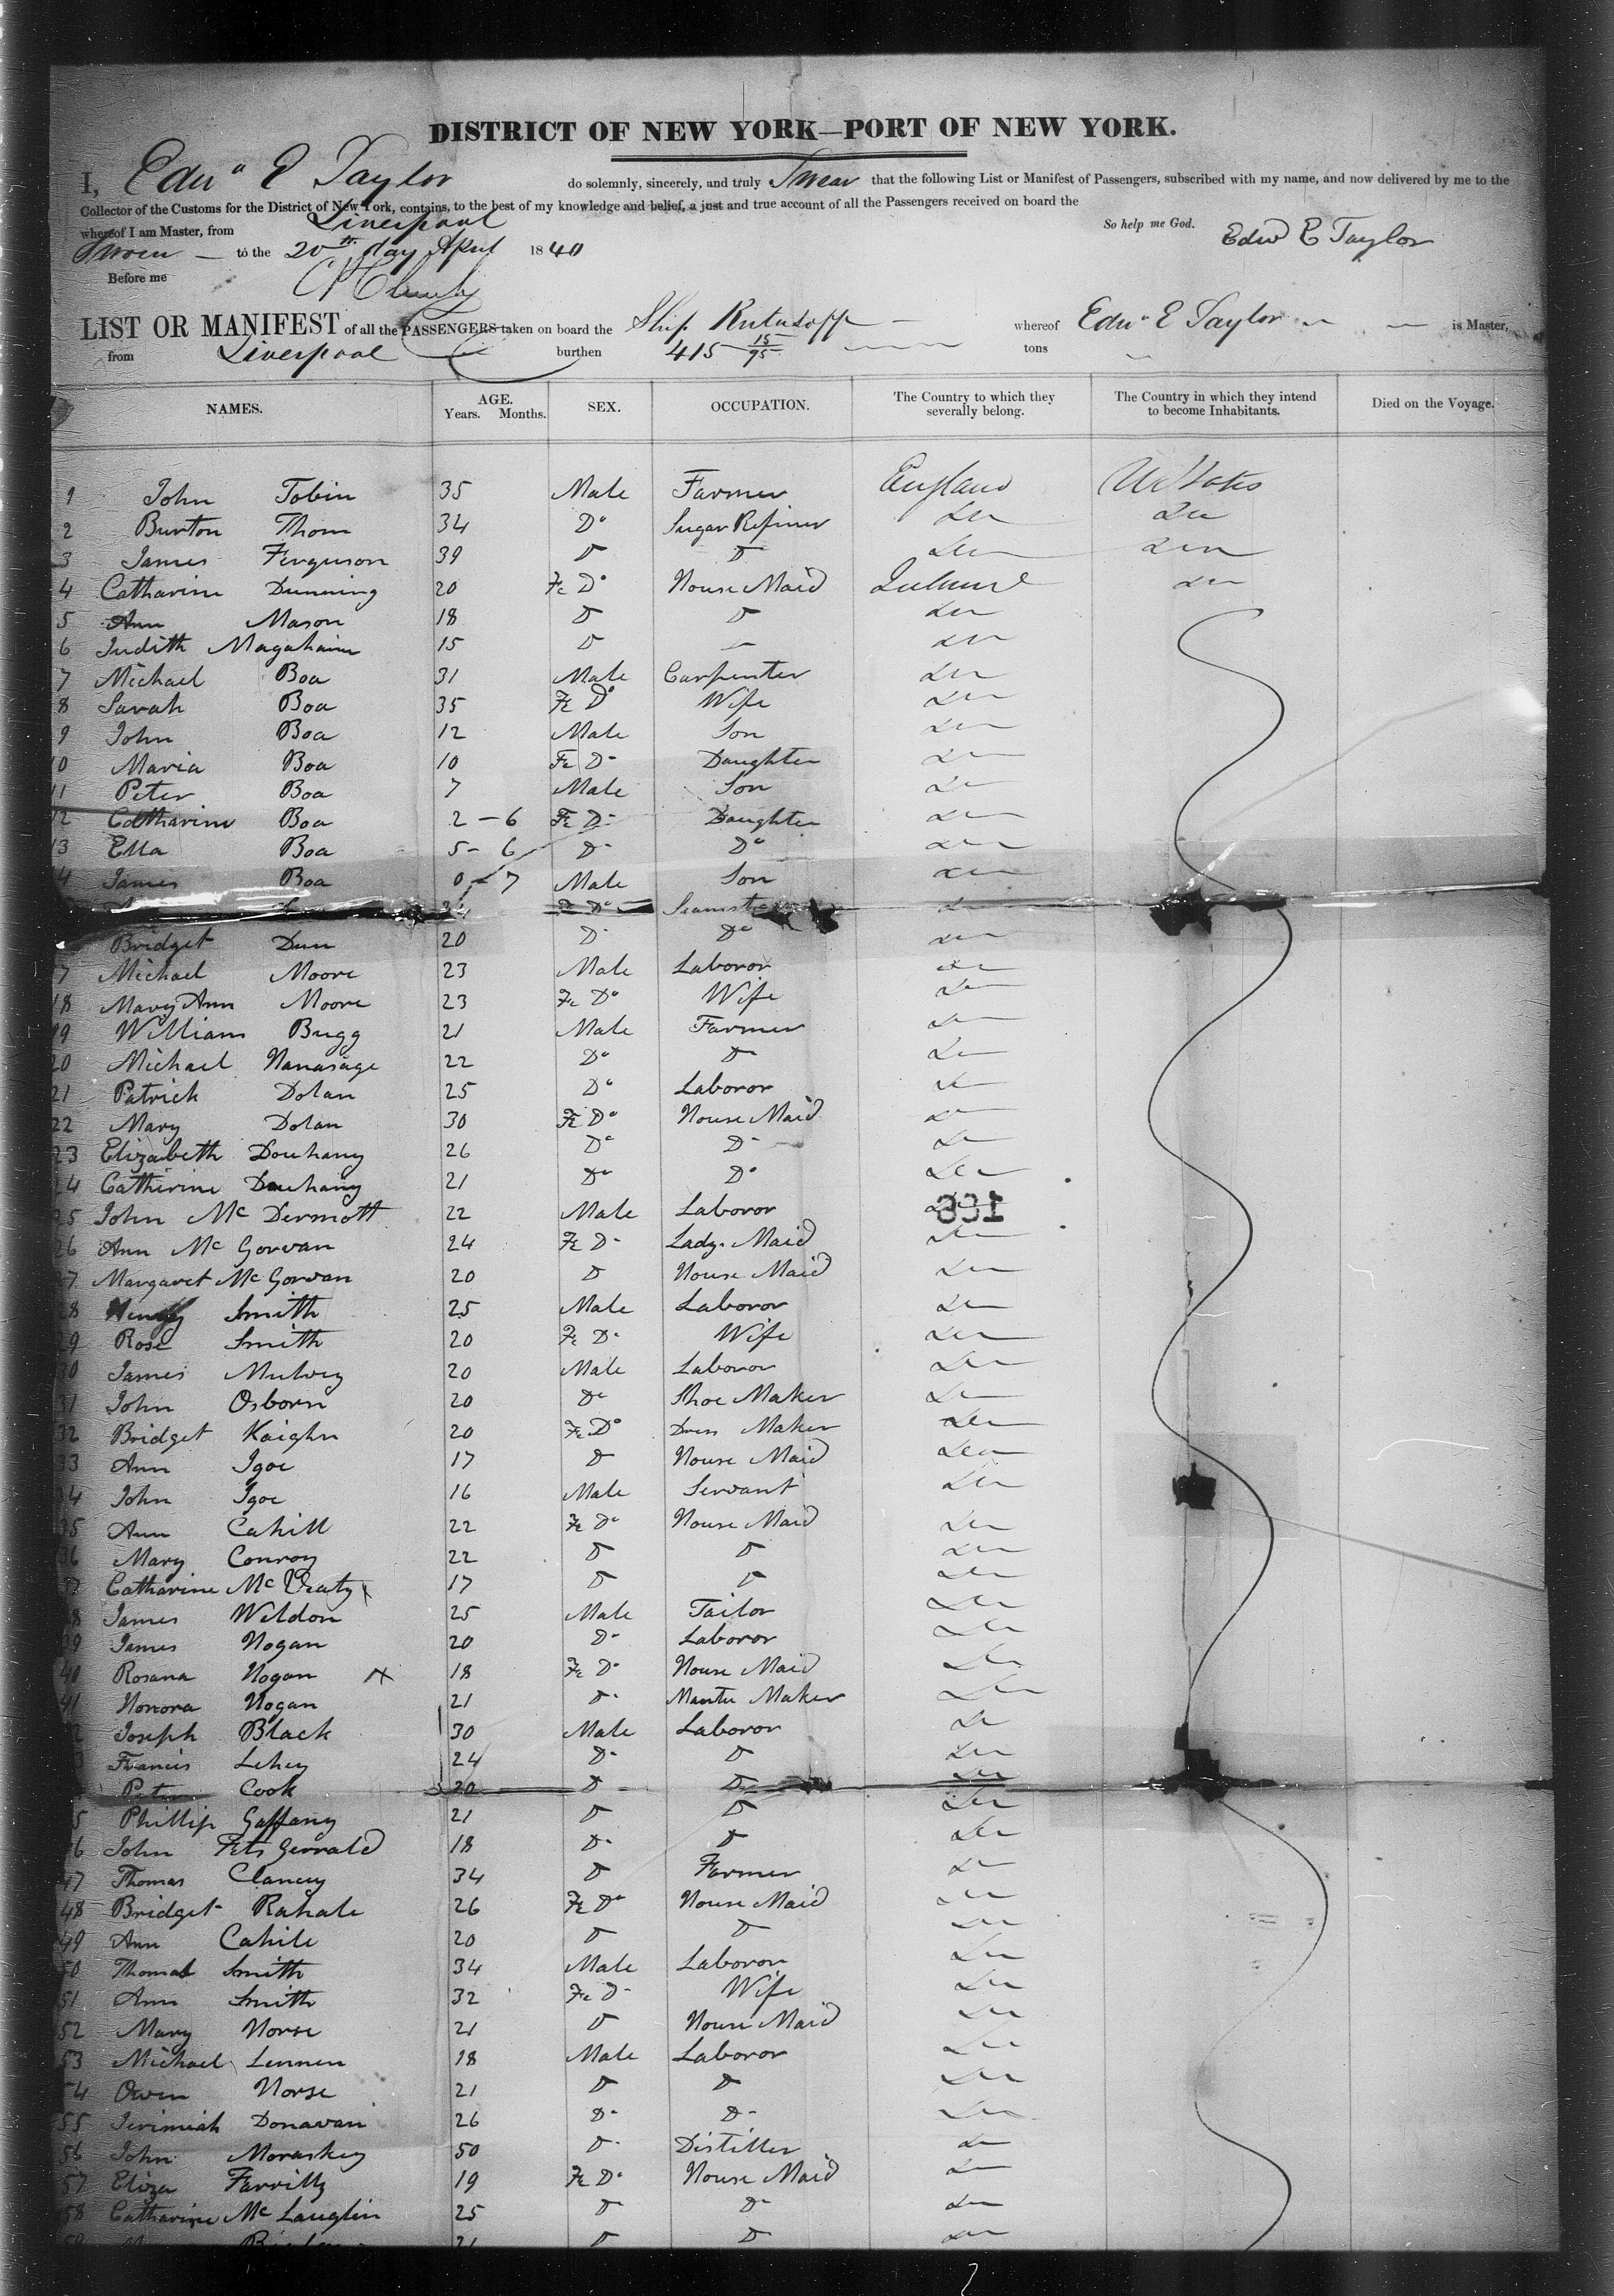 DISTRICT OF NEW YORK—PORT OF NEW YORK.
I, Edwd E Taylor do solemnly, sincerely, and truly Swear that the following List or Manifest of Passengers, subscribed with my name, and now delivered by me to the
Collector of the Customs for the District of New York, contains, to the best of my knowledge and belief, a just and true account of all the Passengers received on board the
whereof I am Master, from Liverpool So help me God.
Sworn — to the 20th day April 1840 Edwd E Taylor
Before me
LIST OR MANIFEST of all the PASSENGERS taken on board the Ship Kutusoff — whereof Edwd E Taylor — is Master,
from Liverpool burthen 415 15/95 tons
NAMES. AGE. Years. Months. SEX. OCCUPATION. The Country to which they severally belong. The Country in which they intend to become Inhabitants. Died on the Voyage.
1 John Tobin 35 Male Farmer England U States
2 Burton Thom 34 Do Sugar Refiner Do Do
3 James Ferguson 39 D D Do Do
4 Catharine Dunning 20 Fe Do House Maid Ireland Do
5 Ann Mason 18 D D Do
6 Judith 15 D — Do
7 Michael Boa 31 Male Carpenter Do
8 Sarah Boa 35 Fe Do Wife Do
9 John Boa 12 Male Son Do
10 Maria Boa 10 Fe D- Daughter Do
11 Peter Boa 7 Male Son Do
12 Catharine Boa 2 - 6 Fe D- Daughter Do
13 Ella Boa 5 - 6 D- Do Do
14 James Boa 0 - 7 Male Son Do
Fe Do Do
Bridget Dun 20 D- Do Do
17 Michael Moore 23 Male Laboror Do
18 Mary Ann Moore 23 Fe Do Wife Do
19 William Bugg 21 Male Farmer Do
20 Michael 22 Do D Do
21 Patrick Dolan 25 Do Laboror Do
22 Mary Dolan 30 Fe Do House Maid Do
23 Elizabeth Douhany 26 Do D- Do
24 Catherine Douhany 21 Do Do Do
25 John Mc Dermott 22 Male Laboror Do
331
26 Ann Mc Gorvan 24 Fe D- Lady. Maid Do
27 Margaret Mc Gorvan 20 D House Maid Do
28 Henry Smith 25 Male Laboror Do
29 Rose Smith 20 Fe D- Wife Do
30 James Mulvey 20 Male Laboror Do
31 John Osborn 20 Do Shoe Maker Do
32 Bridget Kaighn 20 Fe Do Dress Maker Do
33 Ann Igoe 17 D House Maid Do
34 John Igoe 16 Male Servant Do
35 Ann Cahill 22 Fe Do House Maid Do
36 Mary Conroy 22 D D Do
37 Catharine Mc 17 D D Do
38 James Weldon 25 Male Tailor Do
39 James Hogan 20 D- Laboror Do
40 Rosana Hogan X 18 Fe D- House Maid Do
41 Honora Hogan 21 D- Mantu Maker Do
42 Joseph Black 30 Male Laboror Do
43 Francis Lehey 24 D- D Do
Peter Cook 20 D D Do
45 Phillip Gaffany 21 D D Do
46 John Fits Gerrald 18 D- D Do
47 Thomas Clancy 34 D Farmer Do
48 Bridget Rahale 26 Fe Do House Maid Do
49 Ann Cahile 20 D D Do
50 Thomas Smith 34 Male Laboror Do
51 Ann Smith 32 Fe D- Wife Do
52 Mary Horse 21 D House Maid Do
53 Michael Lennen 18 Male Laboror Do
54 Owen Horse 21 D D Do
55 Jerimiah Donavan 26 D- D- Do
56 John Moraskey 50 D- Distiller Do
57 Eliza Farrilly 19 Fe D- House Maid Do
58 Catharine Mc Lauglin 25 D D- Do
21 D D Do